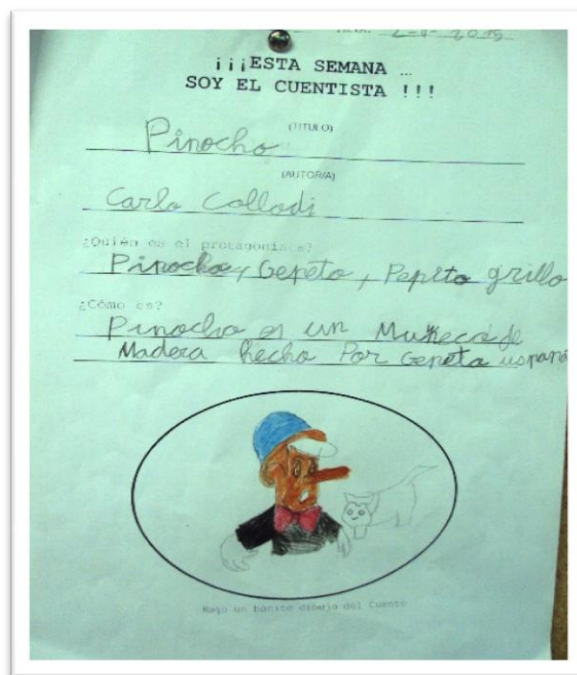 2-4-2005
¡¡¡ESTA SEMANA …
SOY EL CUENTISTA !!!
(TITULO)
Pinocho
(AUTOR/A)
Carlo Collodi
¿Quién es el protagonista?
Pinocho, Gepeto, Pepito grillo
¿Cómo es?
Pinocho es un Muñeco de
Madera hecho Por Gepeto
Hago un bonito dibujo del Cuento